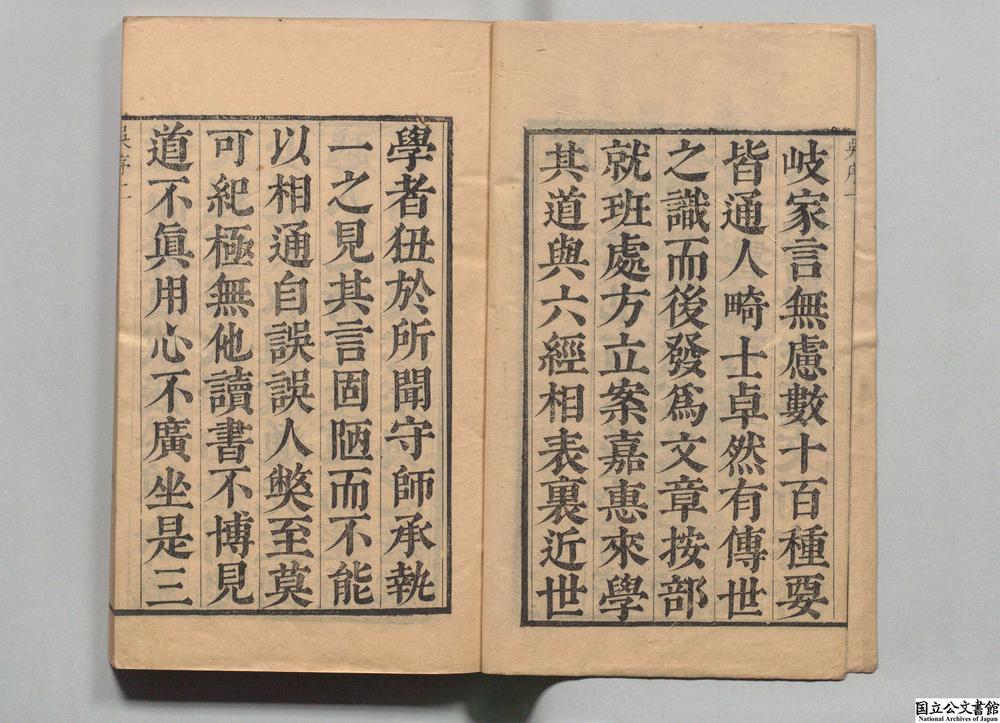 岐家言無慮數十百種要
皆通人畸士卓然有傳世
之識而後發爲文章按部
就班處方立案嘉惠來學
其道與六經相表裏近世
學者狃於所聞守師承執
一之見其言固陋而不能
以相通自誤誤人獘至莫
可紀極無他讀書不博見
道不眞用心不廣坐是三
吳序一
吳序二
国立公文書館
National Archives of Japan